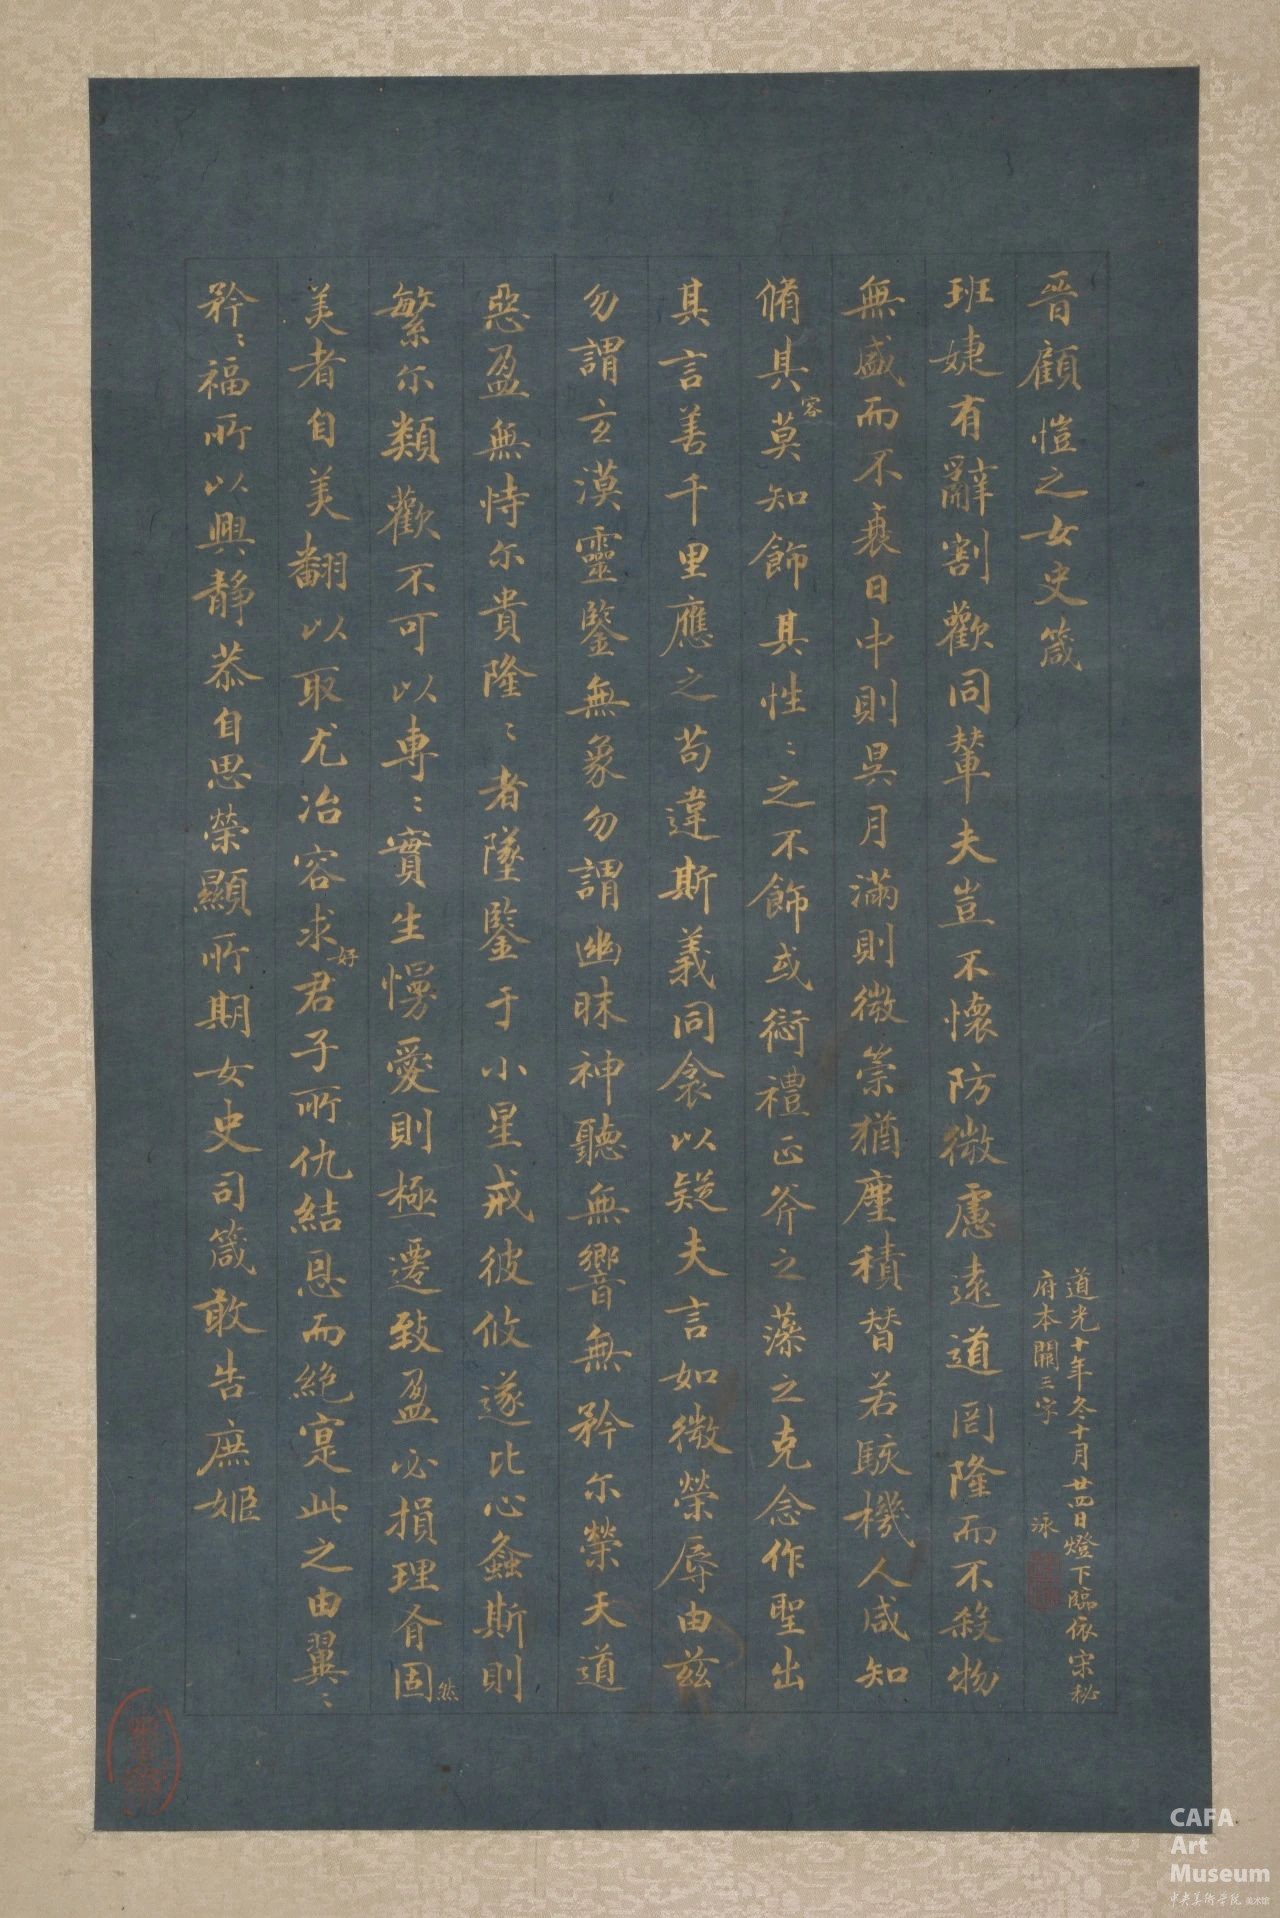 晉顧愷之女史箴
道光十年冬十月廿四日燈下臨依宋秘
府本闕三字 泳
班婕有辭割歡同輦夫豈不懷防微慮遠道罔隆而不殺物
無盛而不衰日中則昃月滿則微崇猶塵積替若駭機人咸知
脩其容莫知飾其性〻之不飾或愆禮正斧之藻之克念作聖出
其言善千里應之苟違斯義同衾以疑夫言如微榮辱由茲
勿謂玄漠靈鑒無象勿謂幽昧神聽無響無矜尔榮天道
惡盈無恃尔貴隆〻者墜鑒于小星戒彼攸遂比心螽斯則
繁尔類歡不可以專〻實生慢愛則極遷致盈必損理有固然
美者自美翻以取尤冶容求好君子所仇結恩而絕寔此之由翼〻
矜〻福所以興靜恭自思榮顯所期女史司箴敢告庶姬
CAFA
Art
Museum
中央美術學院 美术馆